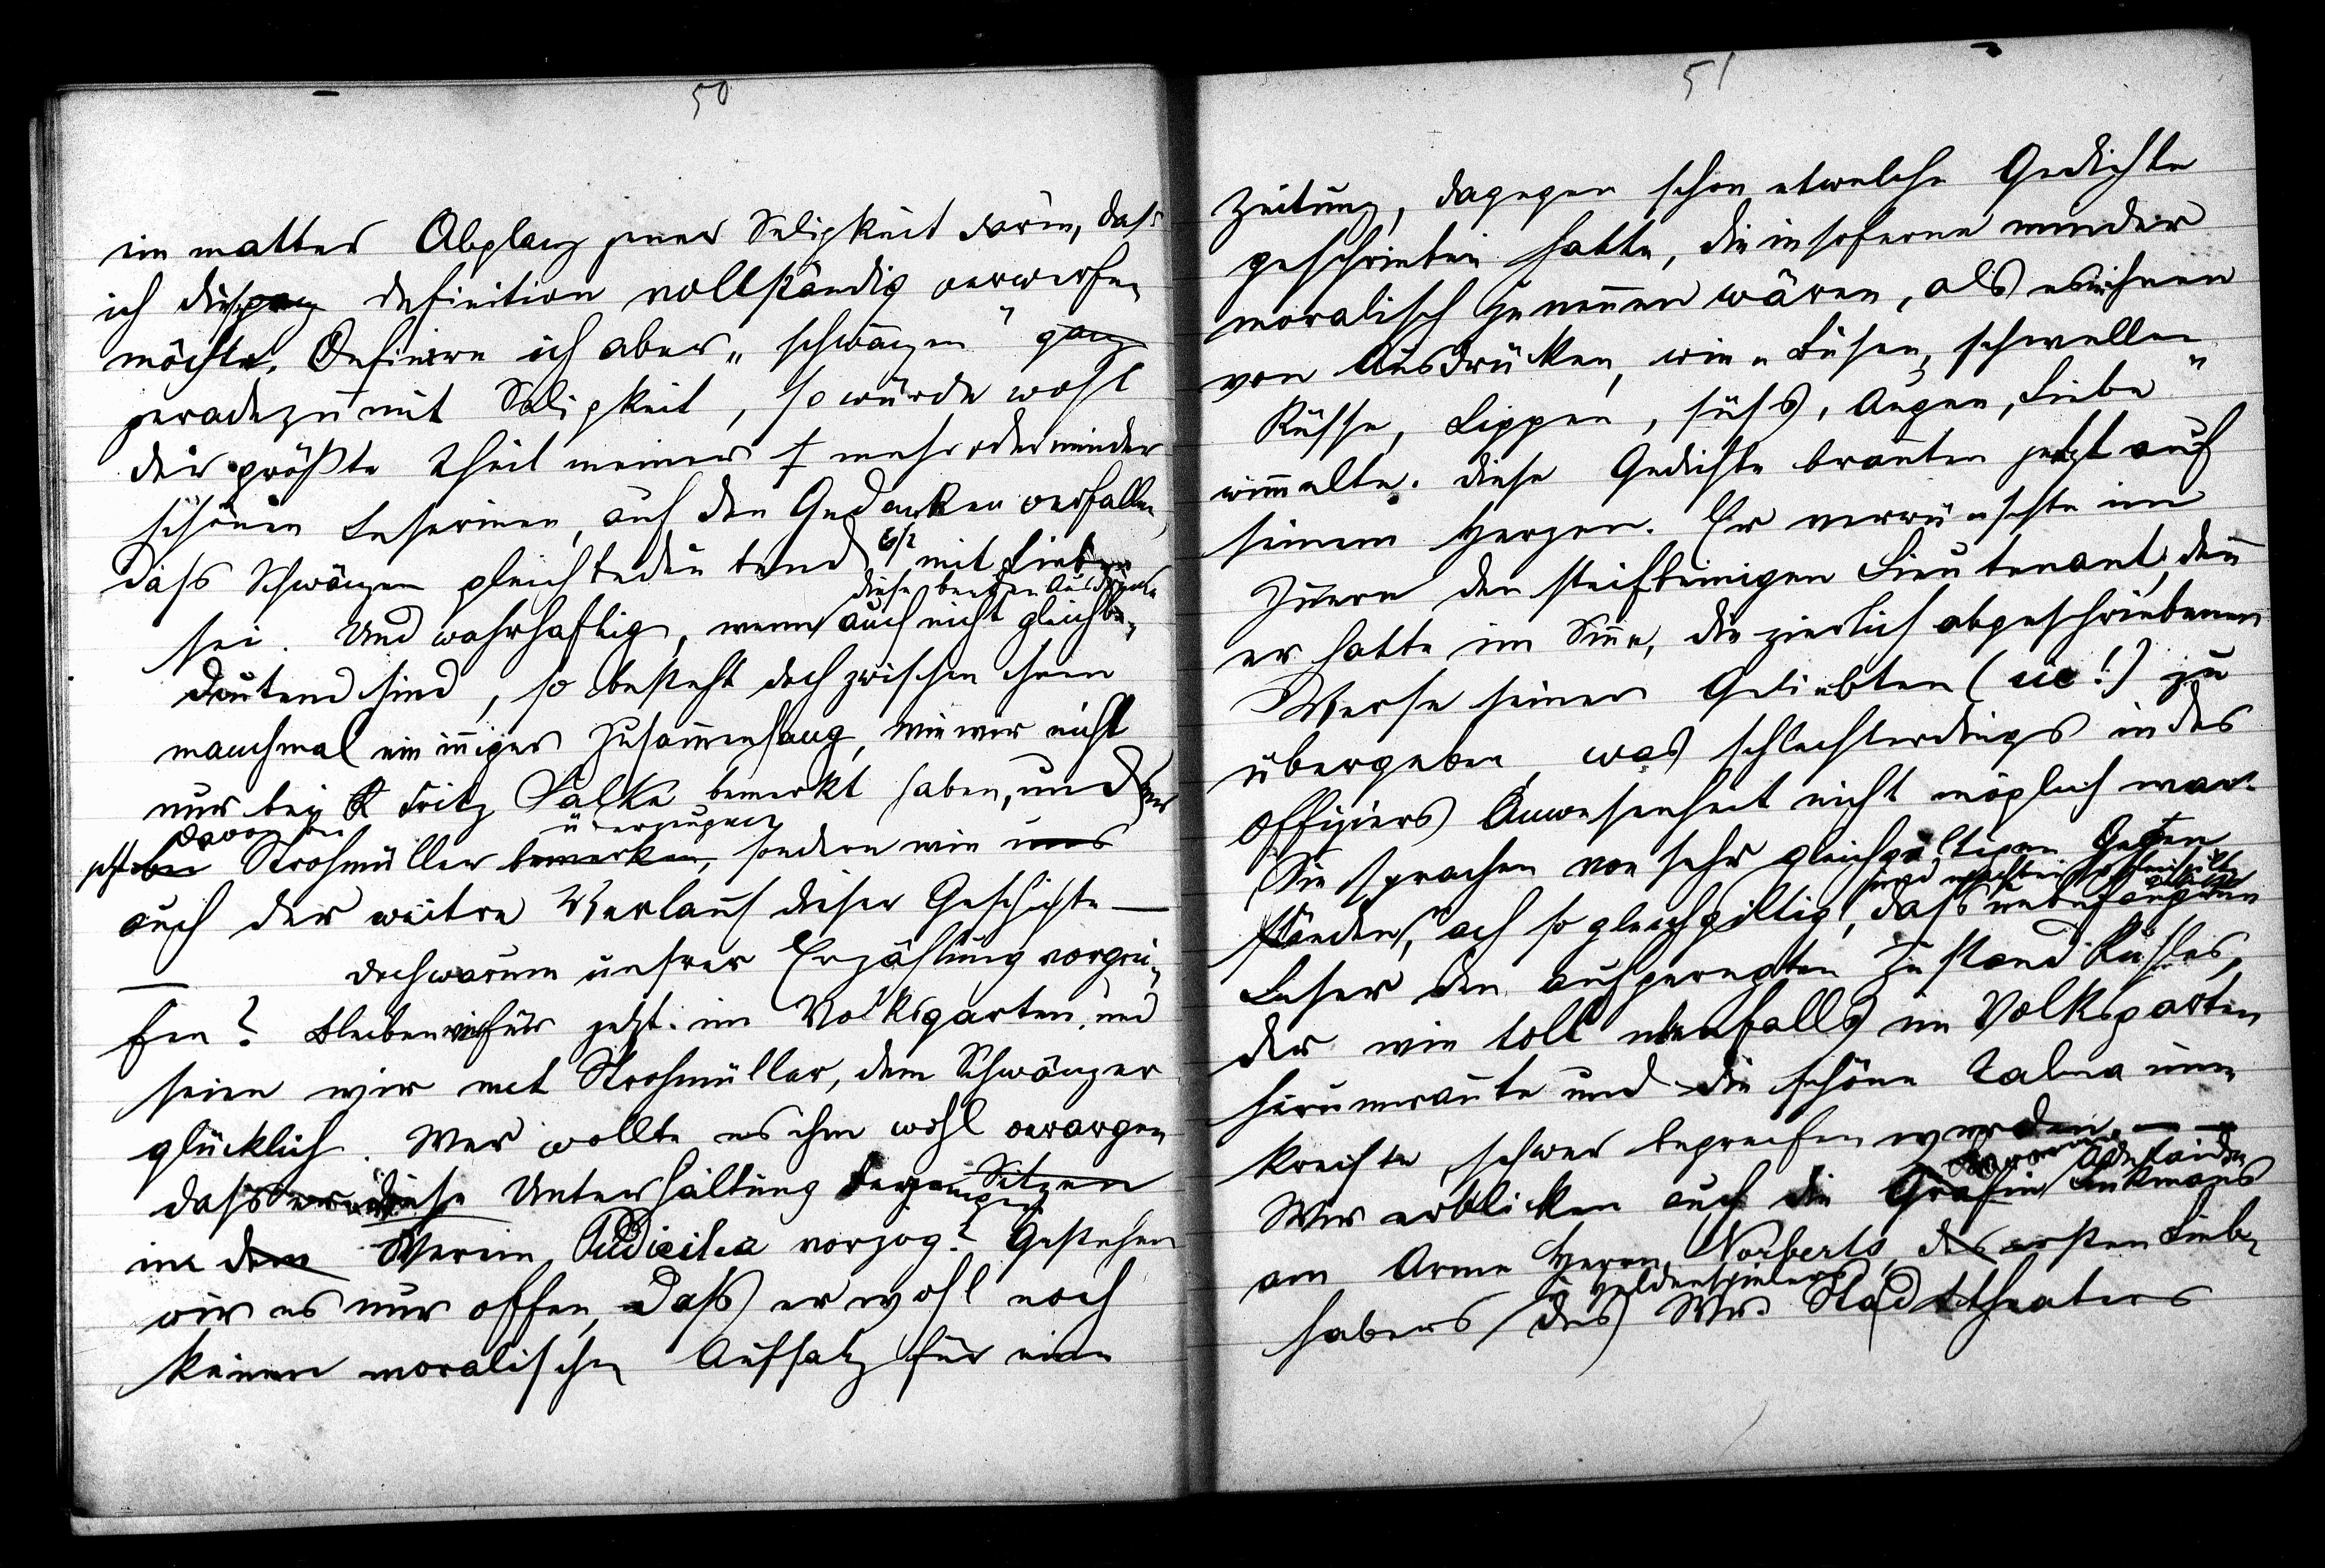 50
ein matter Abglanz jener Seligkeit darin, dass
ich die ganz definition vollständig verwerfen
möchte. Definiren ich aber „schwänzen" ganz
geradezu mit Seligkeit, so würde wohl
der größte Theil meiner mehr oder minder
schönen Leserinen, auf den Gedanken verfallen,
dass Schwänzen gleichbedeutend mit Lieben
diese beiden Ausdrücke
sei. Und wahrhaftig, wenn auch nicht gleichbe-
deutend sind, so besteht doch zwischen ihnen
manchmal ein inniger Zusammenhang, wie wir nicht
nur bei Fritz Salke bemerkt haben, und
davon bei überzeugen
jetzt bei Strohmüller bemerken, sondern wie uns
auch der weitre Verlauf dieser Geschichte —
— doch warum unsrer Erzählung vorgrei-
fen? Bleiben wir für jetzt im Volksgarten und
seien wir mit Strohmüller, dem Schwänzer
glücklich. Wer wollte es ihm wohl verargen
dass er diese Unterhaltung derjenigen Sitzen
im dem Verein Pudicitia vorzog? Gestehen
wir es nur offen, dass er wohl noch
keinen moralischen Aufsatz für eine
51
Zeitung, dagegen schon etwelche Gedichte
geschrieben hatte, die insoferne minder
moralisch zu nennen wären, als es in ihnen
von Ausdrücken, wie „Busen, schwellen
Küsse, Lippen, süss, Augen, Liebe"
wimmelte. Diese Gedichte brannten jetzt auf
seinem Herzen. Er verwünschte im
Innern den steifbeinigen Lieutenant, denn
er hatte im Sinne, die zierlich abgeschriebenen
Verse seiner Geliebten (sic!) zu
übergeben, was schlechterdings in des
Offiziers Anwesenheit nicht möglich war.
Sie sprachen von sehr gleichgültigen Gegen
ständen, ach so gleichgiltig, dass unbefangenen
Leser den aufgeregten Zustand Küsters,
der wie toll ebenfalls im Volksgarten
herumrannte und die schöne Talma um-
kreiste schwer begreifen würden. — —
Adelaiden
Wir erblicken auch die Gräfin Linkmans
am Arme Herrn Norberts, des ersten Lieb-
u Heldenspielers
habers des Wr. Stadttheaters